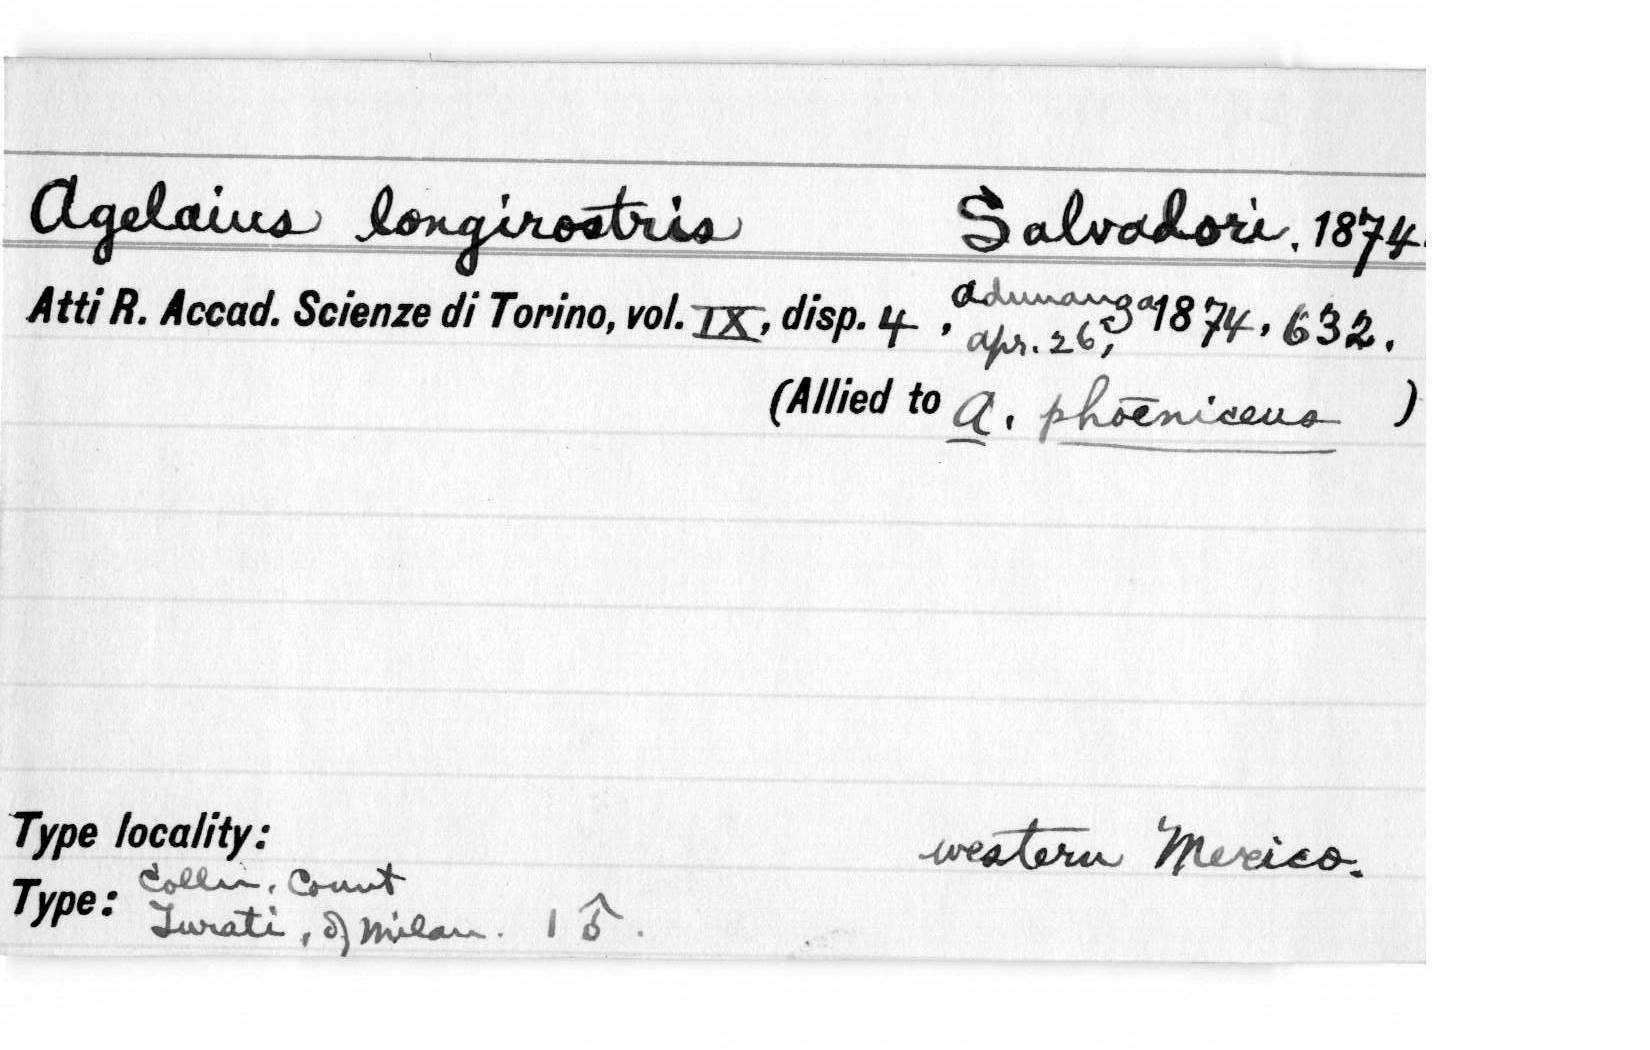 Agelaius longirostris Salvadori, 1874.
Atti R. Accad. Scienze di Torino, vol. IX, disp. 4, adunanza apr. 26, 1874, 632.
(Allied to A. phoeniceus )
Type locality: western Mexico.
Type: Colln. Count
Turati, of Milan. 1 ♂.